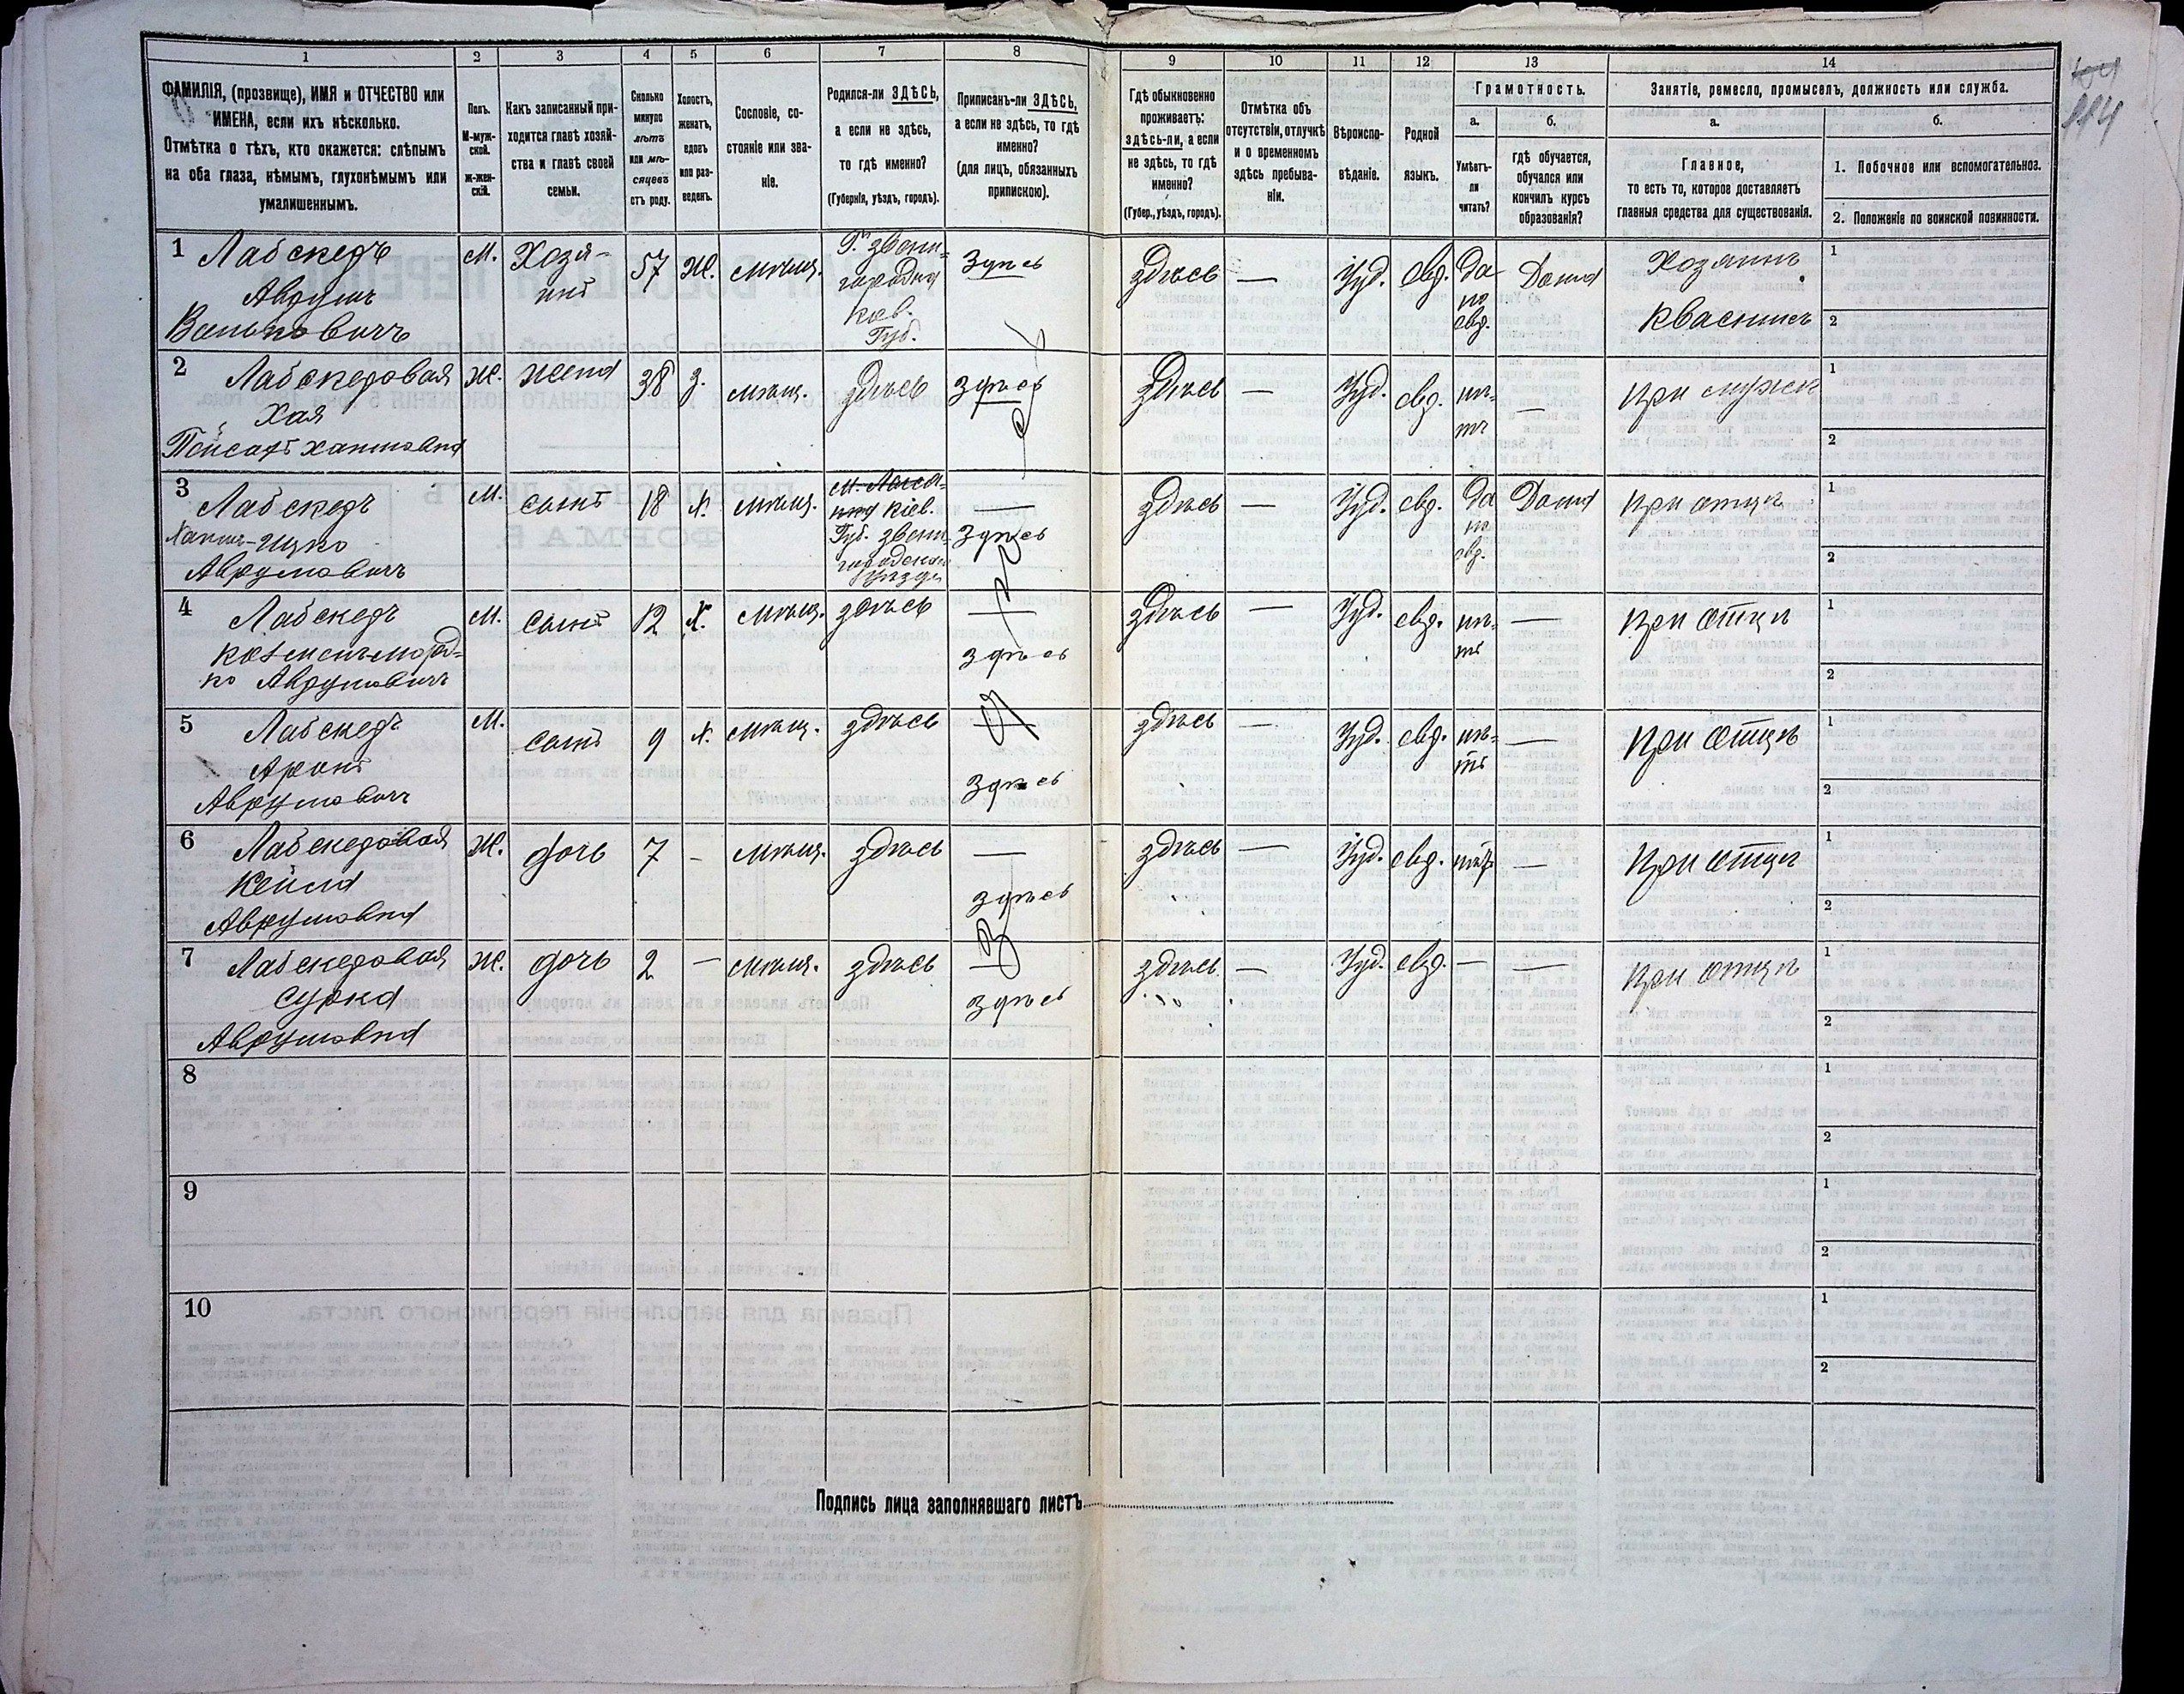 1 2 3 4 5 6 7 8 9 10 11 12 13 14
ФАМИЛІЯ, (прозвище), ИМЯ и ОТЧЕСТВО или
ИМЕНА, если ихъ нѣсколько.
Отмѣтка о тѣхъ, кто окажется: слѣпымъ
на оба глаза, нѣмымъ, глухонѣмымъ или
умалишеннымъ.
Полъ.
М-муж-
ской.
ж-жен-
скій.
Какъ записанный при-
ходится главѣ хозяй-
ства и главѣ своей
семьи.
Сколько
минуло
лѣтъ
или мѣ-
сяцевъ
отъ роду.
Холостъ,
женатъ,
вдовъ
или раз-
веденъ.
Сословіе, со-
стояніе или зва-
ніе.
Родился-ли ЗДѢСЬ,
а если не здѣсь,
то гдѣ именно?
(Губернія, уѣздъ, городъ).
Приписанъ-ли ЗДѢСЬ,
а если не здѣсь, то гдѣ
именно?
(для лицъ, обязанныхъ
припискою).
Гдѣ обыкновенно
проживаетъ:
здѣсь-ли, а если
не здѣсь, то гдѣ
именно?
(Губер., уѣздъ, городъ).
Отмѣтка объ
отсутствіи, отлучкѣ
и о временномъ
здѣсь пребыва-
ніи.
Вѣроиспо-
вѣданіе.
Родной
языкъ.
Грамотность.
а.
Умѣетъ-
ли
читать?
б.
гдѣ обучается,
обучался или
кончилъ курсъ
образованія?
Занятіе, ремесло, промыселъ, должность или служба.
а.
Главное,
то есть то, которое доставляетъ
главныя средства для существованія.
б.
1. Побочное или вспомогательное.
2. Положеніе по воинской повинности.
114
1 Лабскедъ
Аврумъ
М. Хозя-
инъ
57 Ж. мѣщ.
Г. Звени-
городка
Кіев.
Губ.
Здѣсь
здѣсь — Іуд. евр. Да
по
евр.
Дома
Хозяинъ
Квасникъ
1
2
2 Лабскедовая
Хая
Ж. жена 38 з. мѣщ. здѣсь здѣсь
здѣсь — Іуд. евр. нѣ-
тъ
— при мужѣ
1
2
3 Лабскедъ
Аврумовичъ
М. сынъ 18 х. мѣщ.
Кіев.
Губ. Звени-
городскаго
уѣзда
—
Здѣсь
здѣсь — Іуд. евр. Да
по
евр.
Дома при отцѣ
1
2
4 Лабскедъ
Аврумовичъ
М. сынъ 12 х. мѣщ. здѣсь —
здѣсь
здѣсь — Іуд. евр. нѣ-
тъ
— при отцѣ
1
2
5 Лабскедъ
Аронъ
Аврумовичъ
М. сынъ 9 х. мѣщ. здѣсь —
здѣсь
здѣсь — Іуд. евр. нѣ-
тъ
— при отцѣ
1
2
6 Лабскедовая
Кейла
Аврумовна
Ж. дочь 7 — мѣщ. здѣсь —
здѣсь
здѣсь — Іуд. евр. нѣтъ — при отцѣ
1
2
7 Лабскедовая
Сурка
Аврумовна
Ж. дочь 2 — мѣщ. здѣсь —
здѣсь
здѣсь — Іуд. евр. — — при отцѣ
1
2
8
1
2
9
1
2
10
1
2
Подпись лица заполнявшаго листъ